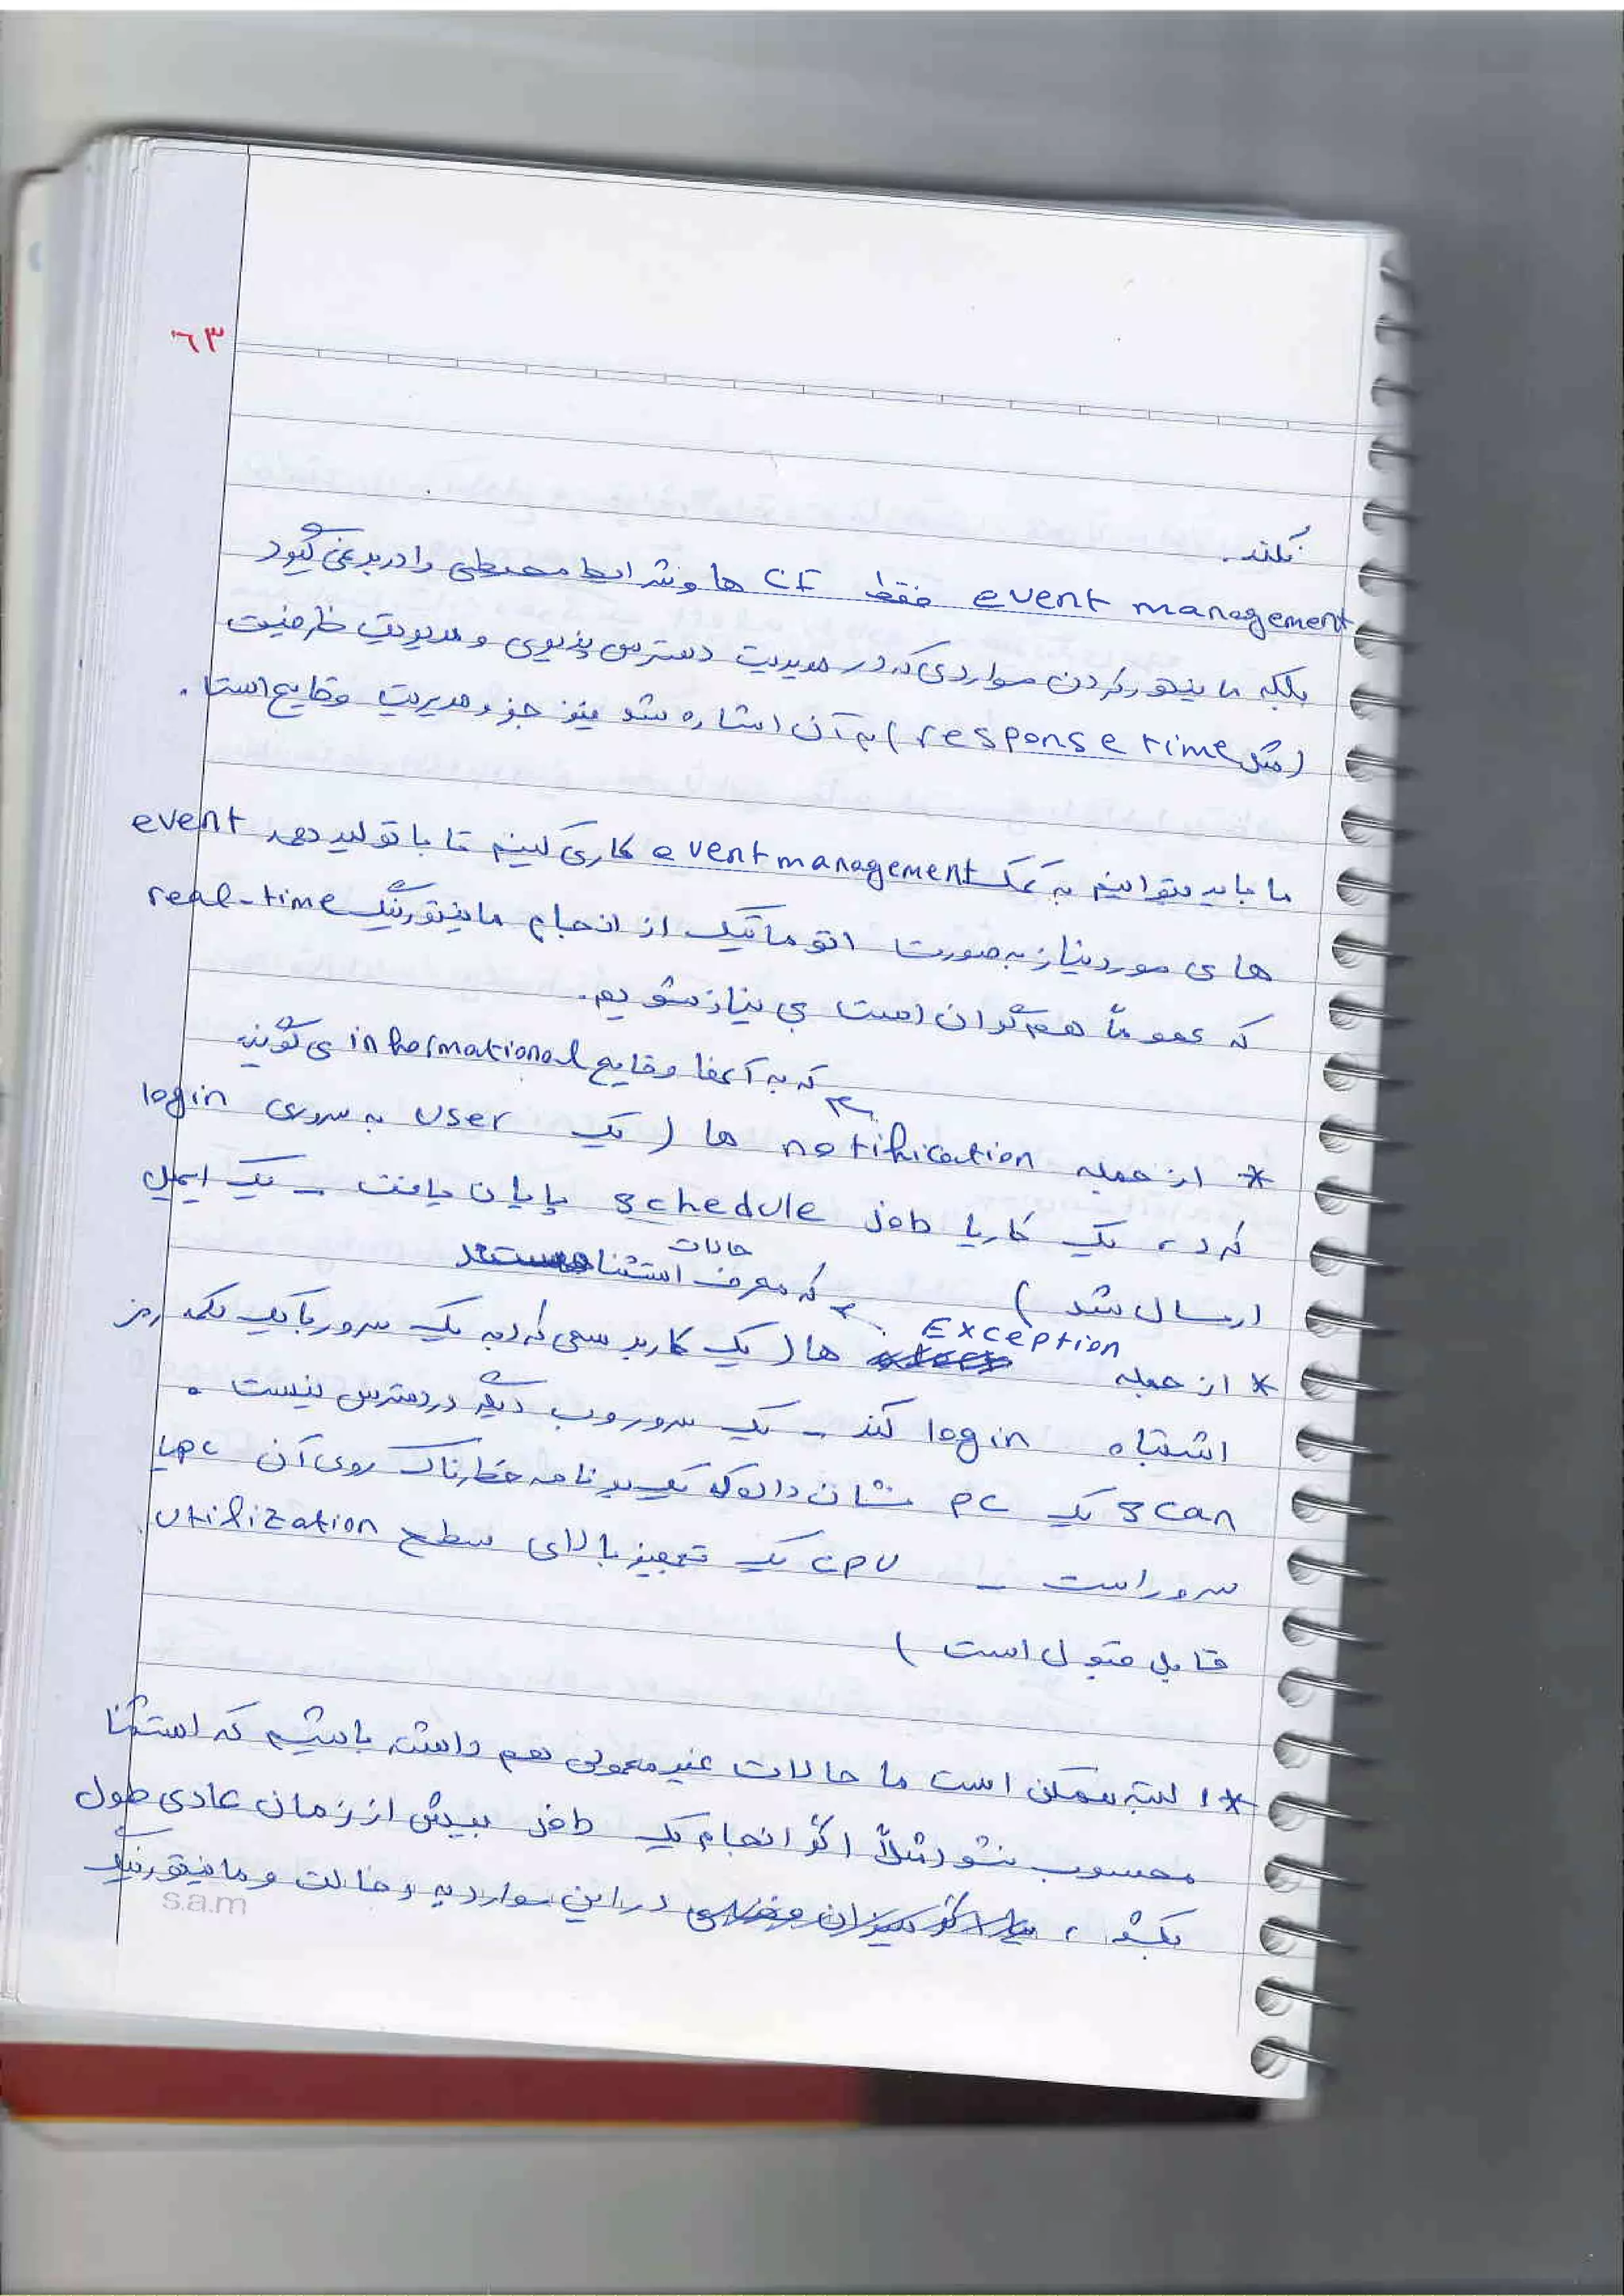 ٦٣
نکند.
event management فقط CI ها و شرایط محیطی را در بر نمی گیرد
بلکه مانیتور کردن مواردی که در مدیریت دسترس پذیری و مدیریت ظرفیت
(مثل response time) به آن اشاره شد نیز جزو مدیریت وقایع است.
ما باید بتوانیم به کمک event management کاری کنیم تا با تولید event
های مورد نیاز به صورت اتوماتیک از انجام مانیتورینگ real-time
که عموماً هم گران است بی نیاز شویم.
که به آنها وقایع informational می گویند
* از جمله notification ها ( یک user به سروری login
کرد ، یک کار یا job schedule پایان یافت - یک ایمیل
ارسال شد )
که معرف حالات استثنا هستند
* از جمله Exception ها ( یک کاربر سعی کرد به یک سرور با یک کلمه رمز
اشتباه login کند - یک سرور وب دیگر در دسترس نیست .
scan یک pc نشان داده که یک برنامه خطرناک روی آن pc یا
سرور است - CPU یک تجهیز بالای سطح utilization
قابل قبول است )
* البته ممکن است ما حالات غیر معمولی هم داشته باشیم که استثنا
محسوب نشود مثلاً اگر انجام یک job بیش از زمان عادی طول
بکشد ، در این موارد به دخالت و مانیتورینگ
s.a.m